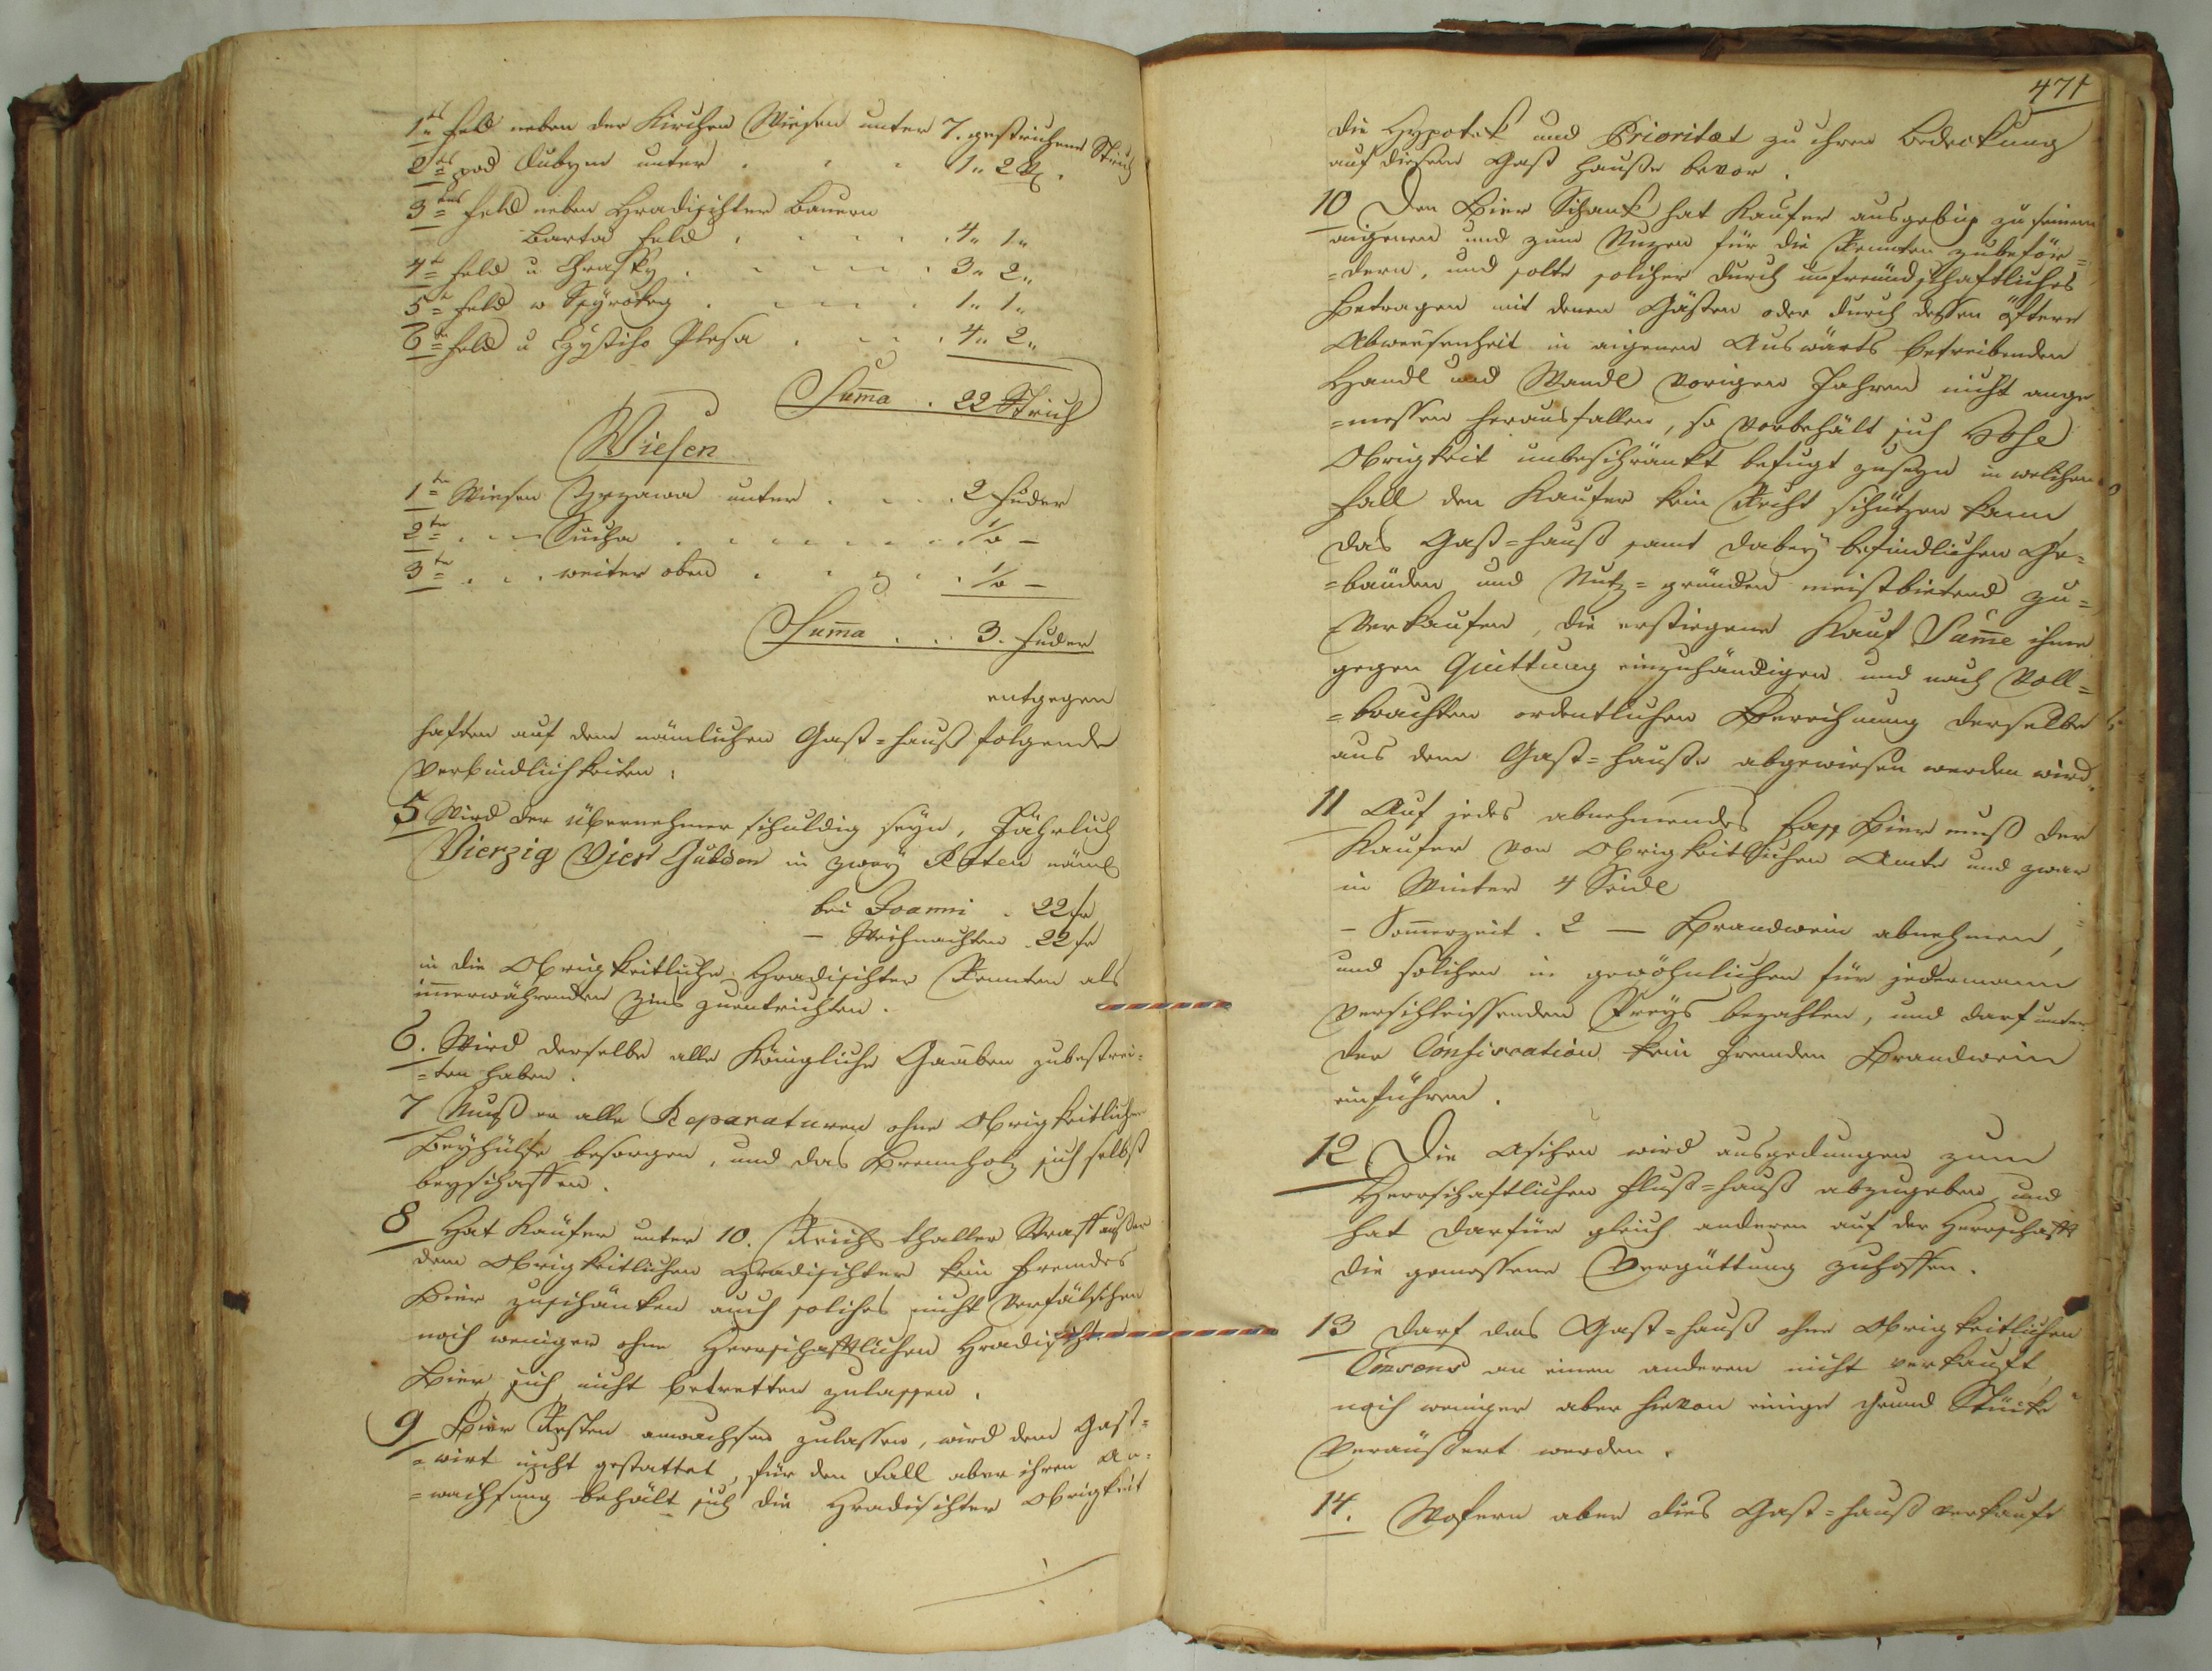 1te Feld neben der Kirchen Wiesen unter 7. gestrichene Strich
2tes pod Dubym unter . . . 1 " 2
3tens Feld neben Hradischter Bauern
Barta Feld . . . . 4 " 1 "
4te Feld u Chrasky . . . . 3 " 2 "
5te Feld w . . . . 1 " 1 "
6te Feld u Plesa . . . . 4 " 2 "
Sum̄a . 22 Strich
Wiesen
1te Wiesen unter . . . 2 Fuder
2te . . . Sucha . . . . . ½ —
3te . . . weiter oben . . . . ½ —
Sum̄a . . 3. Fuder
entgegen
haften auf dem nämlichen Gast=hauß folgende
Verbindlichkeiten:
5 Wird der Übernehmer schuldig seyn, Jährlich
Vierzig Vier Gulden in zwey Ratten näml
bei Joanni . 22 fr
— Weihnachten . 22 fr
in die Obrigkeitliche Hradischter Rennten als
im̄erwährenden Zins zuentrichten.
6. Wird derselbe alle Königliche Gaaben zubestrei=
=ten haben.
7 Muß er alle Reparaturen ohne Obrigkeitlicher
Beyhülfe besorgen, und das Brennholz sich selbst
beyschaffen.
8 Hat Kaüfer unter 10. Reichsthaller Straff ausser
dem Obrigkeitlichen Hradischter kein fremdes
Bier zuschänken auch solches nicht Verfälschen
noch weniger ohne Herrschaftlichen Hradischter
Bier sich nicht betretten zulassen.
9 Bier Resten anwachsen zulassen, wird dem Gast=
=wirt nicht gestattet, für den Fall aber ihren An=
=wachsung behält sich die Hradischter Obrigkeit
471
die Hypotek und Prioritæt zu ihrer Bedeckung
auf diesem Gast Hauße bevor.
10 Den Bier Schank hat Kaufer ausgebig zu seinem
eigenen und zum Nuzen für die Rennten zubeför=
=dern, und solte solcher durch unfreundschaftliches
Betragen mit denen Gästen oder durch dessen öftere
Abwesenheit in eigenen Auswärts betreibenden
Handl und Wandl Vorigen Jahren nicht ange
=messen herausfallen, so Vorbehält sich Hohe
Obrigkeit unbeschränkt befugt zuseyn in welchen
Fall den Kaufer kein Recht schützen kann
das Gast=hauß samt dabey befindlichen Ge=
=bäuden und Nutz=gründen meistbietend zu=
Verkaufen, die erstiegene Kauf Sum̄e ihme
gegen Quittung einzuhändigen und nach Voll=
=brachten ordentlichen Berechnung derselbe
aus dem Gast=hauße abgewiesen werden wird.
11 Auf jedes abnehmendes Fass Bier muß der
Kaufer von Obrigkeitlichen Amte und zwar
in Winter 4 Seidl
— Som̄erzeit . 2 — Brandwein abnehmen,
und solchen in gewöhnlichen für jedermann
Verschleissenden Preys bezahlen, und darf unter
der Confiscation kein fremden Brandwein
einführen.
12 Die Aschen wird ausgedungen zum
Herrschaftlichen Fluß=hauß abzugeben und
hat darfür gleich anderen auf der Herrschaft
die gemessene Vergüttung zuhoffen.
13 Darf das Gast=hauß ohne Obrigkeitlichen
Consens an einen anderen nicht verkauft
noch weniger aber hievon einige Grund Stücke
Veräußert werden.
14. Wofern aber dies Gast=hauß verkauft